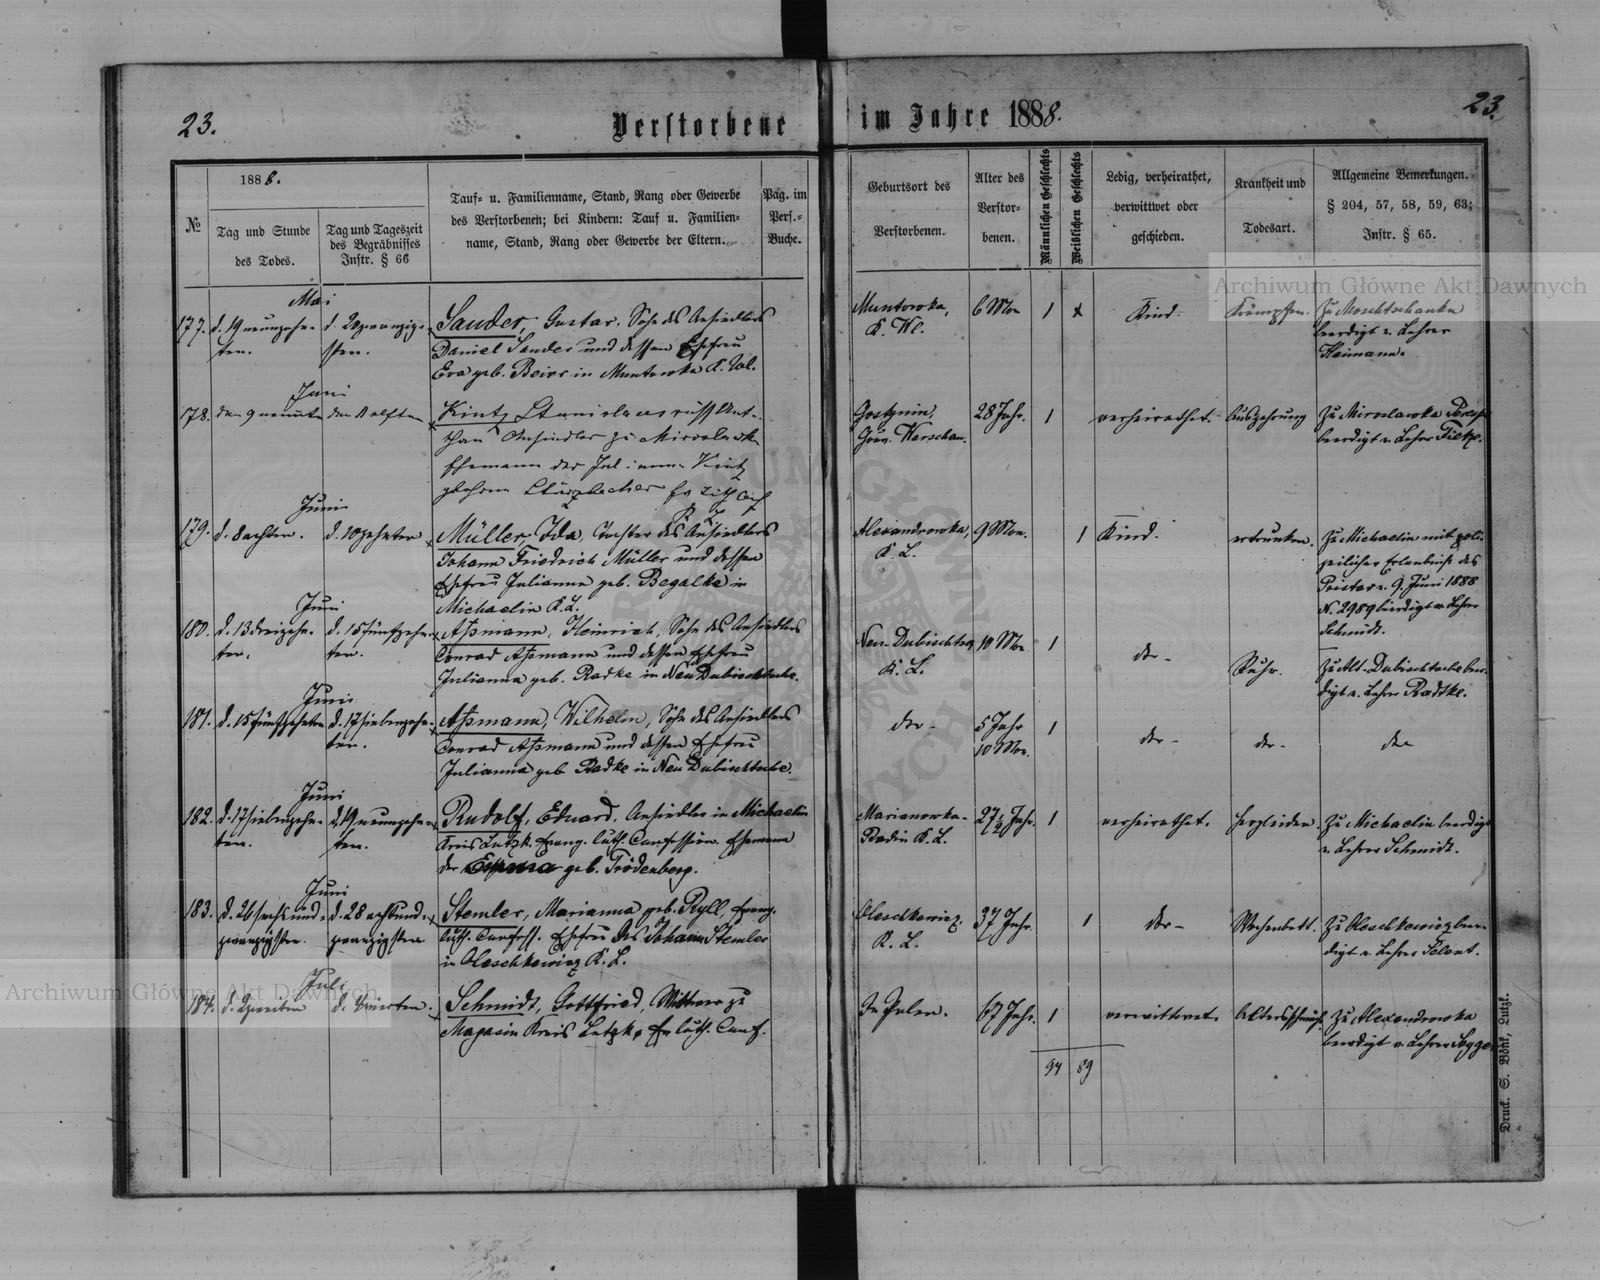 23.
Verstorbene im Jahre 1888.
23.
№
1888.
Tag und Stunde
des Todes.
Tag und Tageszeit
des Begräbnisses
Instr. § 66
Tauf- u. Familienname, Stand, Rang oder Gewerbe
des Verstorbenen; bei Kindern: Tauf u. Familien-
name, Stand, Rang oder Gewerbe der Eltern.
Pag. im
Pers.-
Buche.
Geburtsort des
Verstorbenen.
Alter des
Verstor-
benen.
Männlichen Geschlechts
Weiblichen Geschlechts
Ledig, verheirathet,
verwittwet oder
geschieden.
Krankheit und
Todesart.
Allgemeine Bemerkungen.
§ 204, 57, 58, 59, 63;
Instr. § 65.
Mai
177. d. 19 neunzehn-
ten.
d. 20 zwanzig-
sten.
Sander, Gustav. Sohn des Ansiedlers
Daniel Sander und dessen Ehefrau
Eva geb. Beier in Muntowka K. Wl.
Muntowka,
K. Wl.
6 Mon
1
Kind.
Krämpfen.
Zu Moschtschanka
beerdigt v. Lehrer
Heimann.
Juni
178. den 9 neunten den 11 elften
Kintz Stanislaus
Ansiedler zu Miroslawk
Ehemann der Julianna Kintz
Gostynin,
Gouv. Warschau.
28 Jahr.
1
verheirathet.
Auszehrung
Zu Miroslawka
beerdigt v. Lehrer Tietze.
Juni
179. d. 8 achten.
d. 10 zehnten
Müller, Ida, Tochter des Ansiedlers
Johann Friedrich Müller und dessen
Ehefrau Julianna geb. Begalke in
Michaelin K. L.
Alexandrowka,
K. L.
9 Mon.
1
Kind.
ertrunken.
Zu Michaelin mit poli-
zeilicher Erlaubniß des
Pristav v. 9. Juni 1888
N. 2989 beerdigt v. Lehrer
Schmidt.
Juni
180. d. 13 dreizehn-
ten.
d. 15 fünfzehn-
ten.
Aßmann, Heinrich, Sohn des Ansiedlers
Conrad Aßmann und dessen Ehefrau
Julianna geb. Radke in Neu Dubischtsche.
Neu-Dubischtsche
K. L.
10 Mon
1
dto-
Ruhr.
Zu Alt-Dubischtsche beer-
digt v. Lehrer Radtke.
Juni
181. d. 15 fünfzehnten
d. 17 siebenzehn-
ten.
Aßmann, Wilhelm, Sohn des Ansiedlers
Conrad Aßmann und dessen Ehefrau
Julianna geb. Radke in Neu Dubischtsche.
dto-
5 Jahr
10 Mon.
1
dto-
dto-
dto
Juni
182. d. 17 siebenzehn-
ten.
d. 19 neunzehn-
ten.
Rudolf, Eduard. Ansiedler in Michaelin
Kreis Lutzk. Evang. luth. Confession. Ehemann
der Emma geb. Trödenberg.
Marianowka-
Radin K. L.
27½ Jahr.
1
verheirathet.
Herzleiden.
Zu Michaelin beerdigt
v. Lehrer Schmidt.
Juni
183. d. 26 sechsund-
zwanzigsten.
d. 28 achtund-
zwanzigsten
Stemler, Marianna geb. Ryll, Evang.
luth. Confess. Ehefrau des Johann Stemler
in Oleschkewicz K. L.
Oleschkewicz.
K. L.
37 Jahr.
1
dto-
Wochenbett.
Zu Oleschkewicz beer-
digt v. Lehrer Selent.
Juli
184. d. 2 zweiten
d. 4 vierten.
Schmidt, Gottfried, Wittwer zu
Magasin Kreis Lutzk, Ev. luth. Conf.
In Polen.
67 Jahr.
1
verwittwet.
Altersschwäche.
Zu Alexandrowka
beerdigt v. Lehrer
94 89
Druck. S. Bönk, Lutzk.
Archiwum Główne Akt Dawnych
Archiwum Główne Akt Dawnych